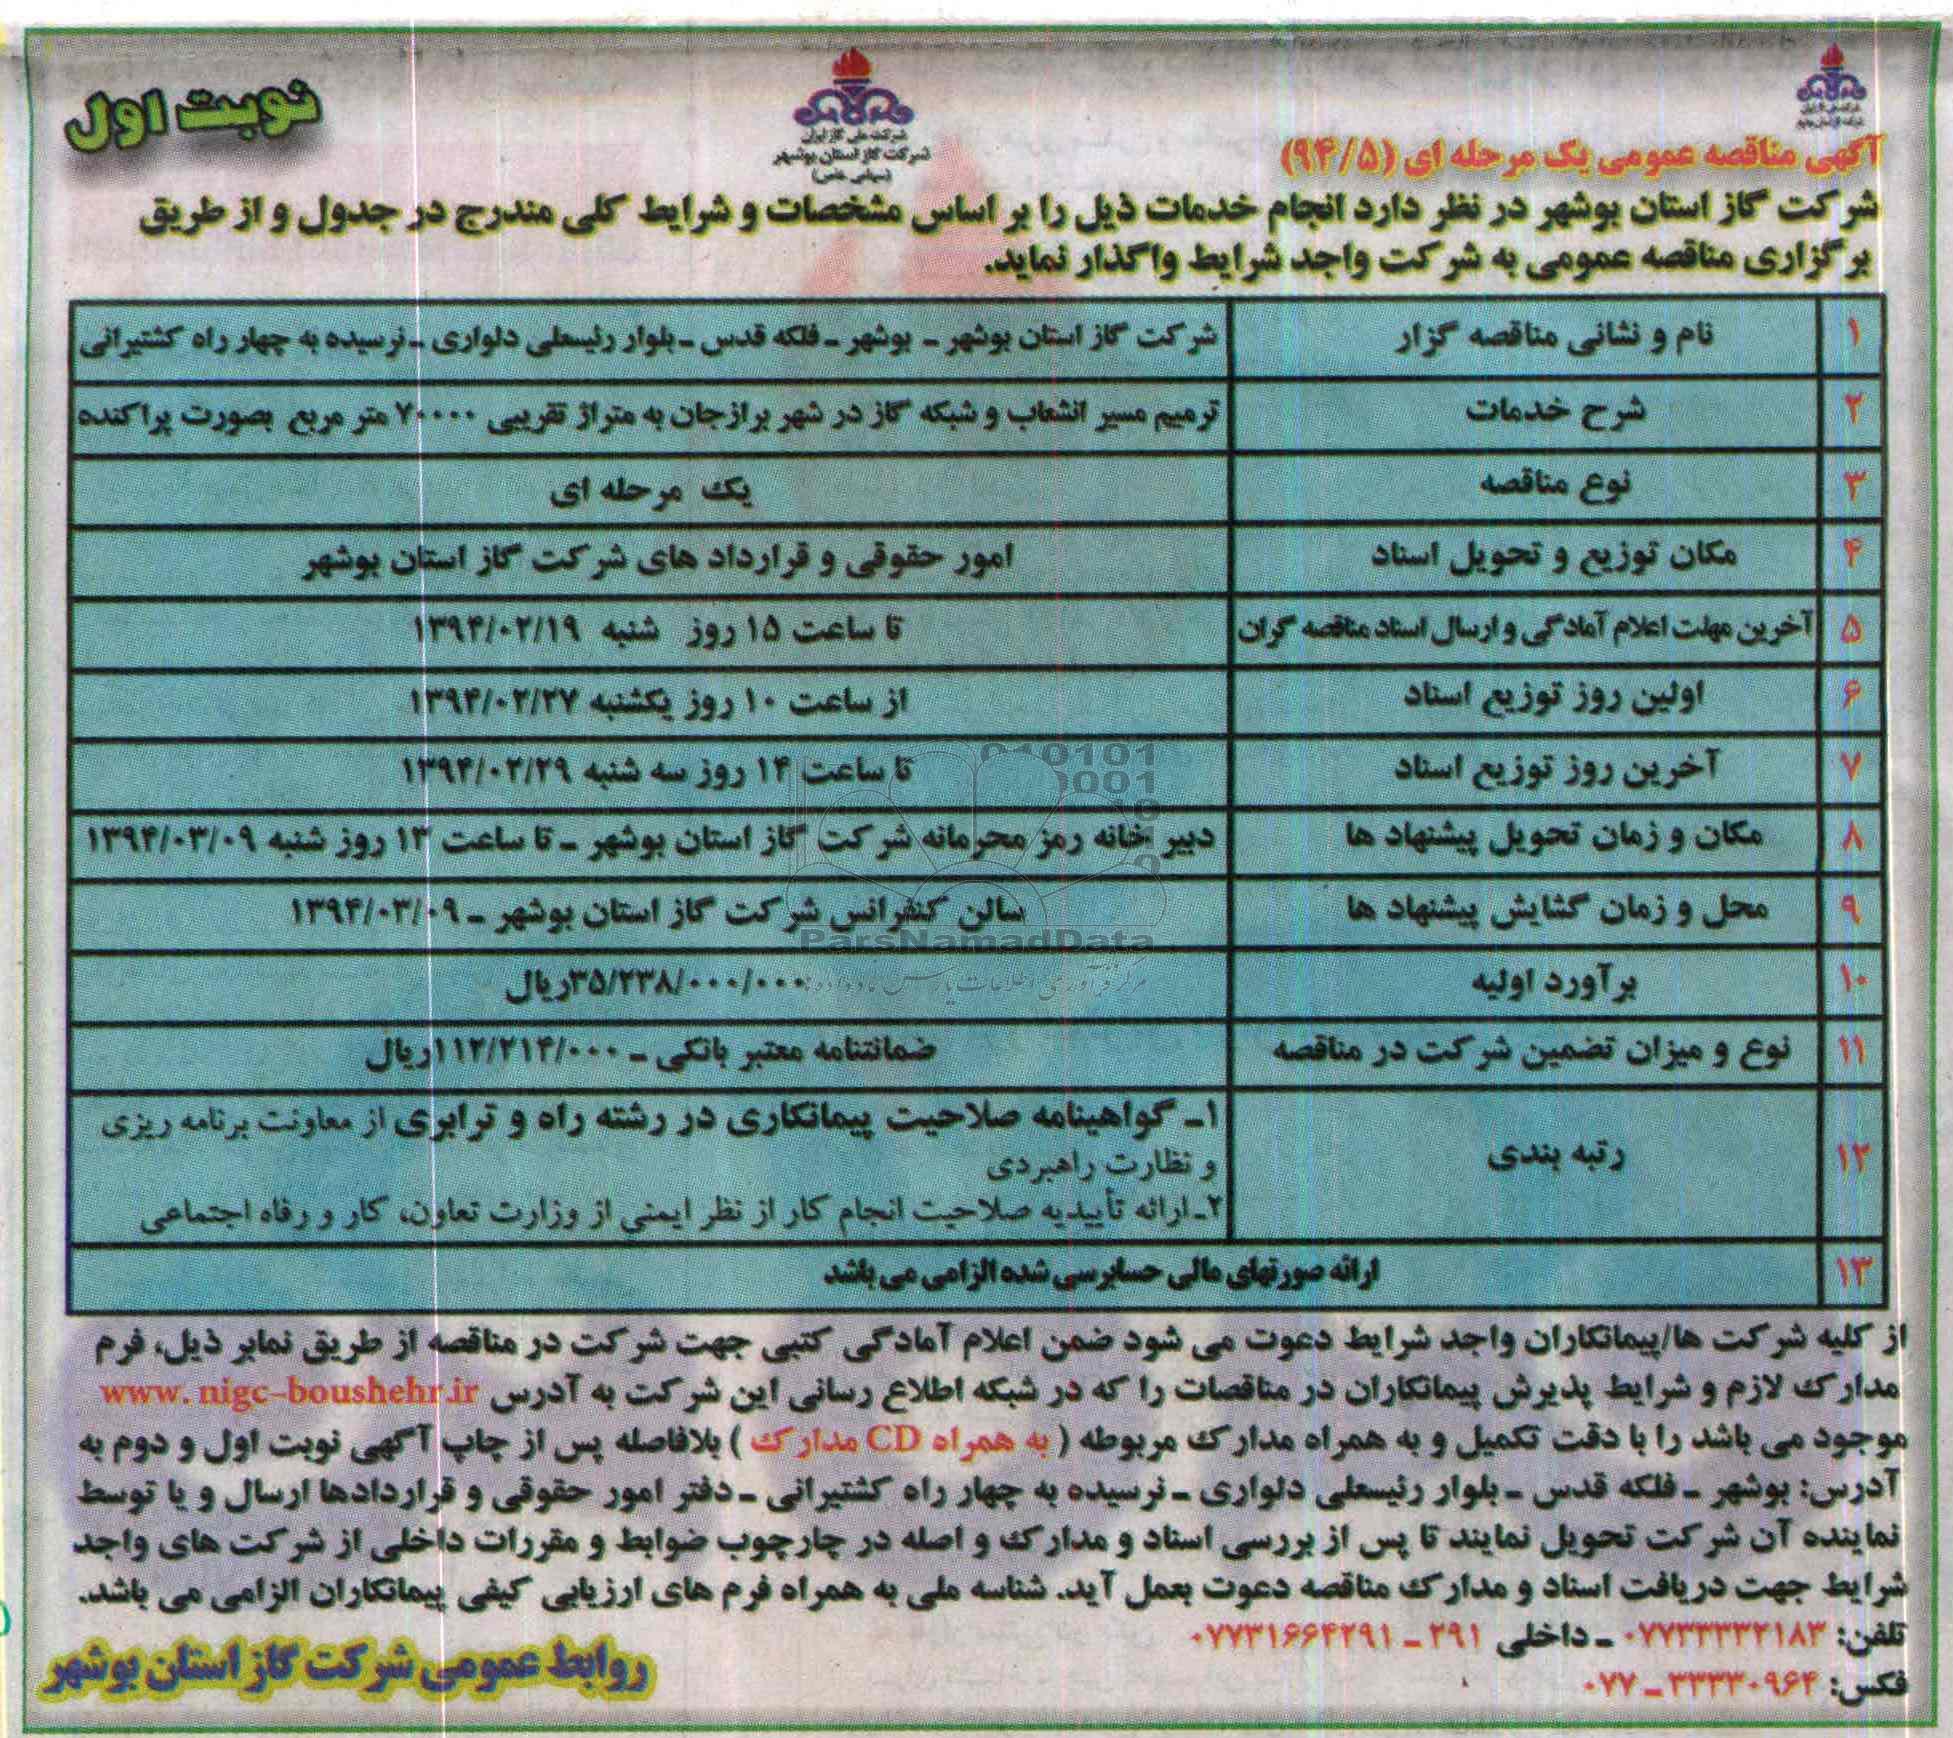 نوبت اول
شرکت ملی گاز ایران
شرکت گاز استان بوشهر
(سهامی خاص)
آگهی مناقصه عمومی یک مرحله ای (۹۴/۵)
شرکت گاز استان بوشهر در نظر دارد انجام خدمات ذیل را بر اساس مشخصات و شرایط کلی مندرج در جدول و از طریق
برگزاری مناقصه عمومی به شرکت واجد شرایط واگذار نماید.
۱ نام و نشانی مناقصه گزار شرکت گاز استان بوشهر ـ بوشهر ـ فلکه قدس ـ بلوار رئیسعلی دلواری ـ نرسیده به چهار راه کشتیرانی
۲ شرح خدمات ترمیم مسیر انشعاب و شبکه گاز در شهر برازجان به متراژ تقریبی ۷۰۰۰۰ متر مربع بصورت پراکنده
۳ نوع مناقصه یک مرحله ای
۴ مکان توزیع و تحویل اسناد امور حقوقی و قرارداد های شرکت گاز استان بوشهر
۵ آخرین مهلت اعلام آمادگی و ارسال اسناد مناقصه گران تا ساعت ۱۵ روز شنبه ۱۳۹۴/۰۲/۱۹
۶ اولین روز توزیع اسناد از ساعت ۱۰ روز یکشنبه ۱۳۹۴/۰۲/۲۷
۷ آخرین روز توزیع اسناد تا ساعت ۱۴ روز سه شنبه ۱۳۹۴/۰۲/۲۹
۸ مکان و زمان تحویل پیشنهاد ها دبیر خانه رمز محرمانه شرکت گاز استان بوشهر ـ تا ساعت ۱۳ روز شنبه ۱۳۹۴/۰۳/۰۹
۹ محل و زمان گشایش پیشنهاد ها سالن کنفرانس شرکت گاز استان بوشهر ـ ۱۳۹۴/۰۳/۰۹
۱۰ برآورد اولیه ۳۵/۲۳۸/۰۰۰/۰۰۰ریال
۱۱ نوع و میزان تضمین شرکت در مناقصه ضمانتنامه معتبر بانکی ـ ۱۱۲/۲۱۴/۰۰۰ریال
۱۲ رتبه بندی ۱ـ گواهینامه صلاحیت پیمانکاری در رشته راه و ترابری از معاونت برنامه ریزی
و نظارت راهبردی
۲ـ ارائه تأییدیه صلاحیت انجام کار از نظر ایمنی از وزارت تعاون، کار و رفاه اجتماعی
۱۳ ارائه صورتهای مالی حسابرسی شده الزامی می باشد
ParsNamadData
از کلیه شرکت ها/پیمانکاران واجد شرایط دعوت می شود ضمن اعلام آمادگی کتبی جهت شرکت در مناقصه از طریق نمابر ذیل، فرم
مدارک لازم و شرایط پذیرش پیمانکاران در مناقصات را که در شبکه اطلاع رسانی این شرکت به آدرس www. nigc-boushehr.ir
موجود می باشد را با دقت تکمیل و به همراه مدارک مربوطه ( به همراه CD مدارک ) بلافاصله پس از چاپ آگهی نوبت اول و دوم به
آدرس: بوشهر ـ فلکه قدس ـ بلوار رئیسعلی دلواری ـ نرسیده به چهار راه کشتیرانی ـ دفتر امور حقوقی و قراردادها ارسال و یا توسط
نماینده آن شرکت تحویل نمایند تا پس از بررسی اسناد و مدارک و اصله در چارچوب ضوابط و مقررات داخلی از شرکت های واجد
شرایط جهت دریافت اسناد و مدارک مناقصه دعوت بعمل آید. شناسه ملی به همراه فرم های ارزیابی کیفی پیمانکاران الزامی می باشد.
تلفن: ۰۷۷۳۳۳۳۲۱۸۳ ـ داخلی ۲۹۱ ـ ۰۷۷۳۱۶۶۴۲۹۱
فکس: ۳۳۳۳۰۹۶۴ ـ ۰۷۷
روابط عمومی شرکت گاز استان بوشهر